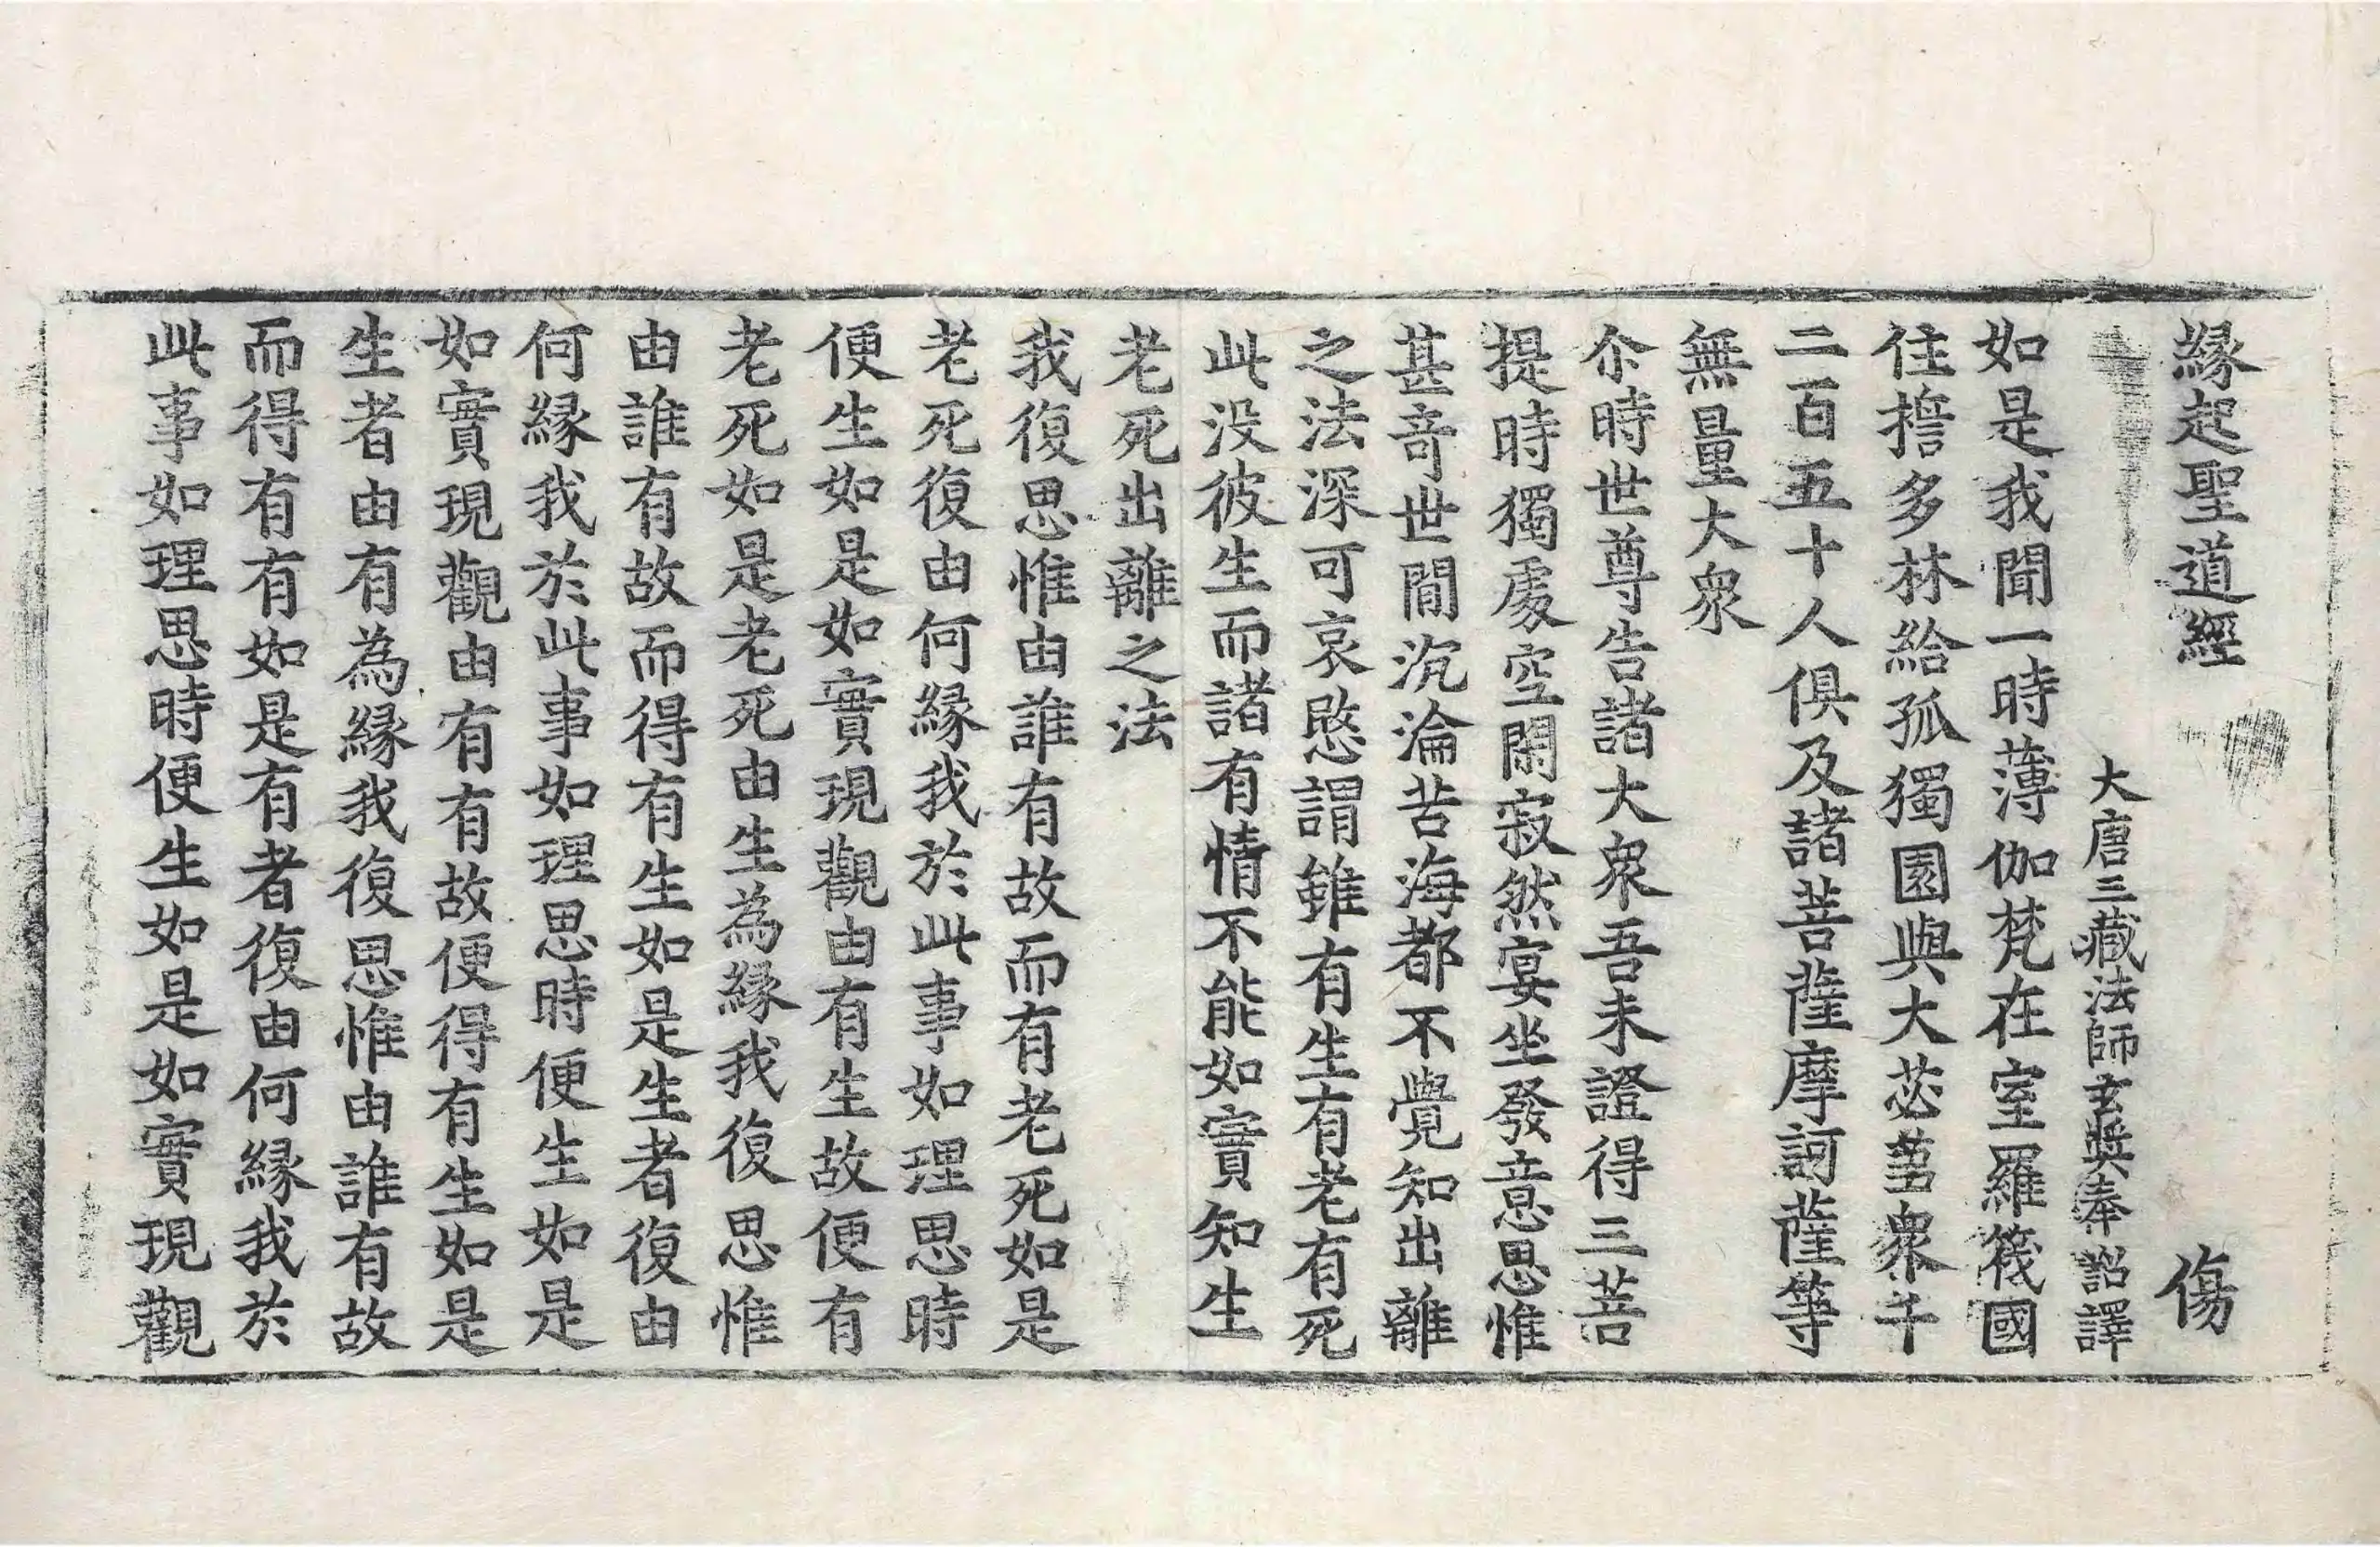 縁起聖道經 傷
大唐三藏法師玄奘奉 詔譯
如是我聞一時薄伽梵在室羅筏國
住擔多林給孤獨園與大苾蒭衆千
二百五十人俱及諸菩薩摩訶薩等
無量大衆
尒時世尊告諸大衆吾未證得三菩
提時獨處空閑寂然宴坐發意思惟
甚奇世間沉淪苦海都不覺知出離
之法深可哀愍謂雖有生有老有死
此没彼生而諸有情不能如實知生
老死出離之法
我復思惟由誰有故而有老死如是
老死復由何縁我於此事如理思時
便生如是如實現觀由有生故便有
老死如是老死由生為縁我復思惟
由誰有故而得有生如是生者復由
何縁我於此事如理思時便生如是
如實現觀由有有故便得有生如是
生者由有為縁我復思惟由誰有故
而得有有如是有者復由何縁我於
此事如理思時便生如是如實現觀